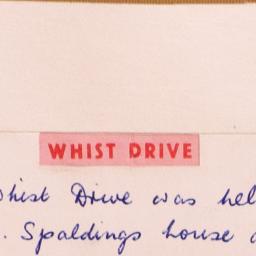 WHIST DRIVE
Whist Drive was hel
. Spaldings house